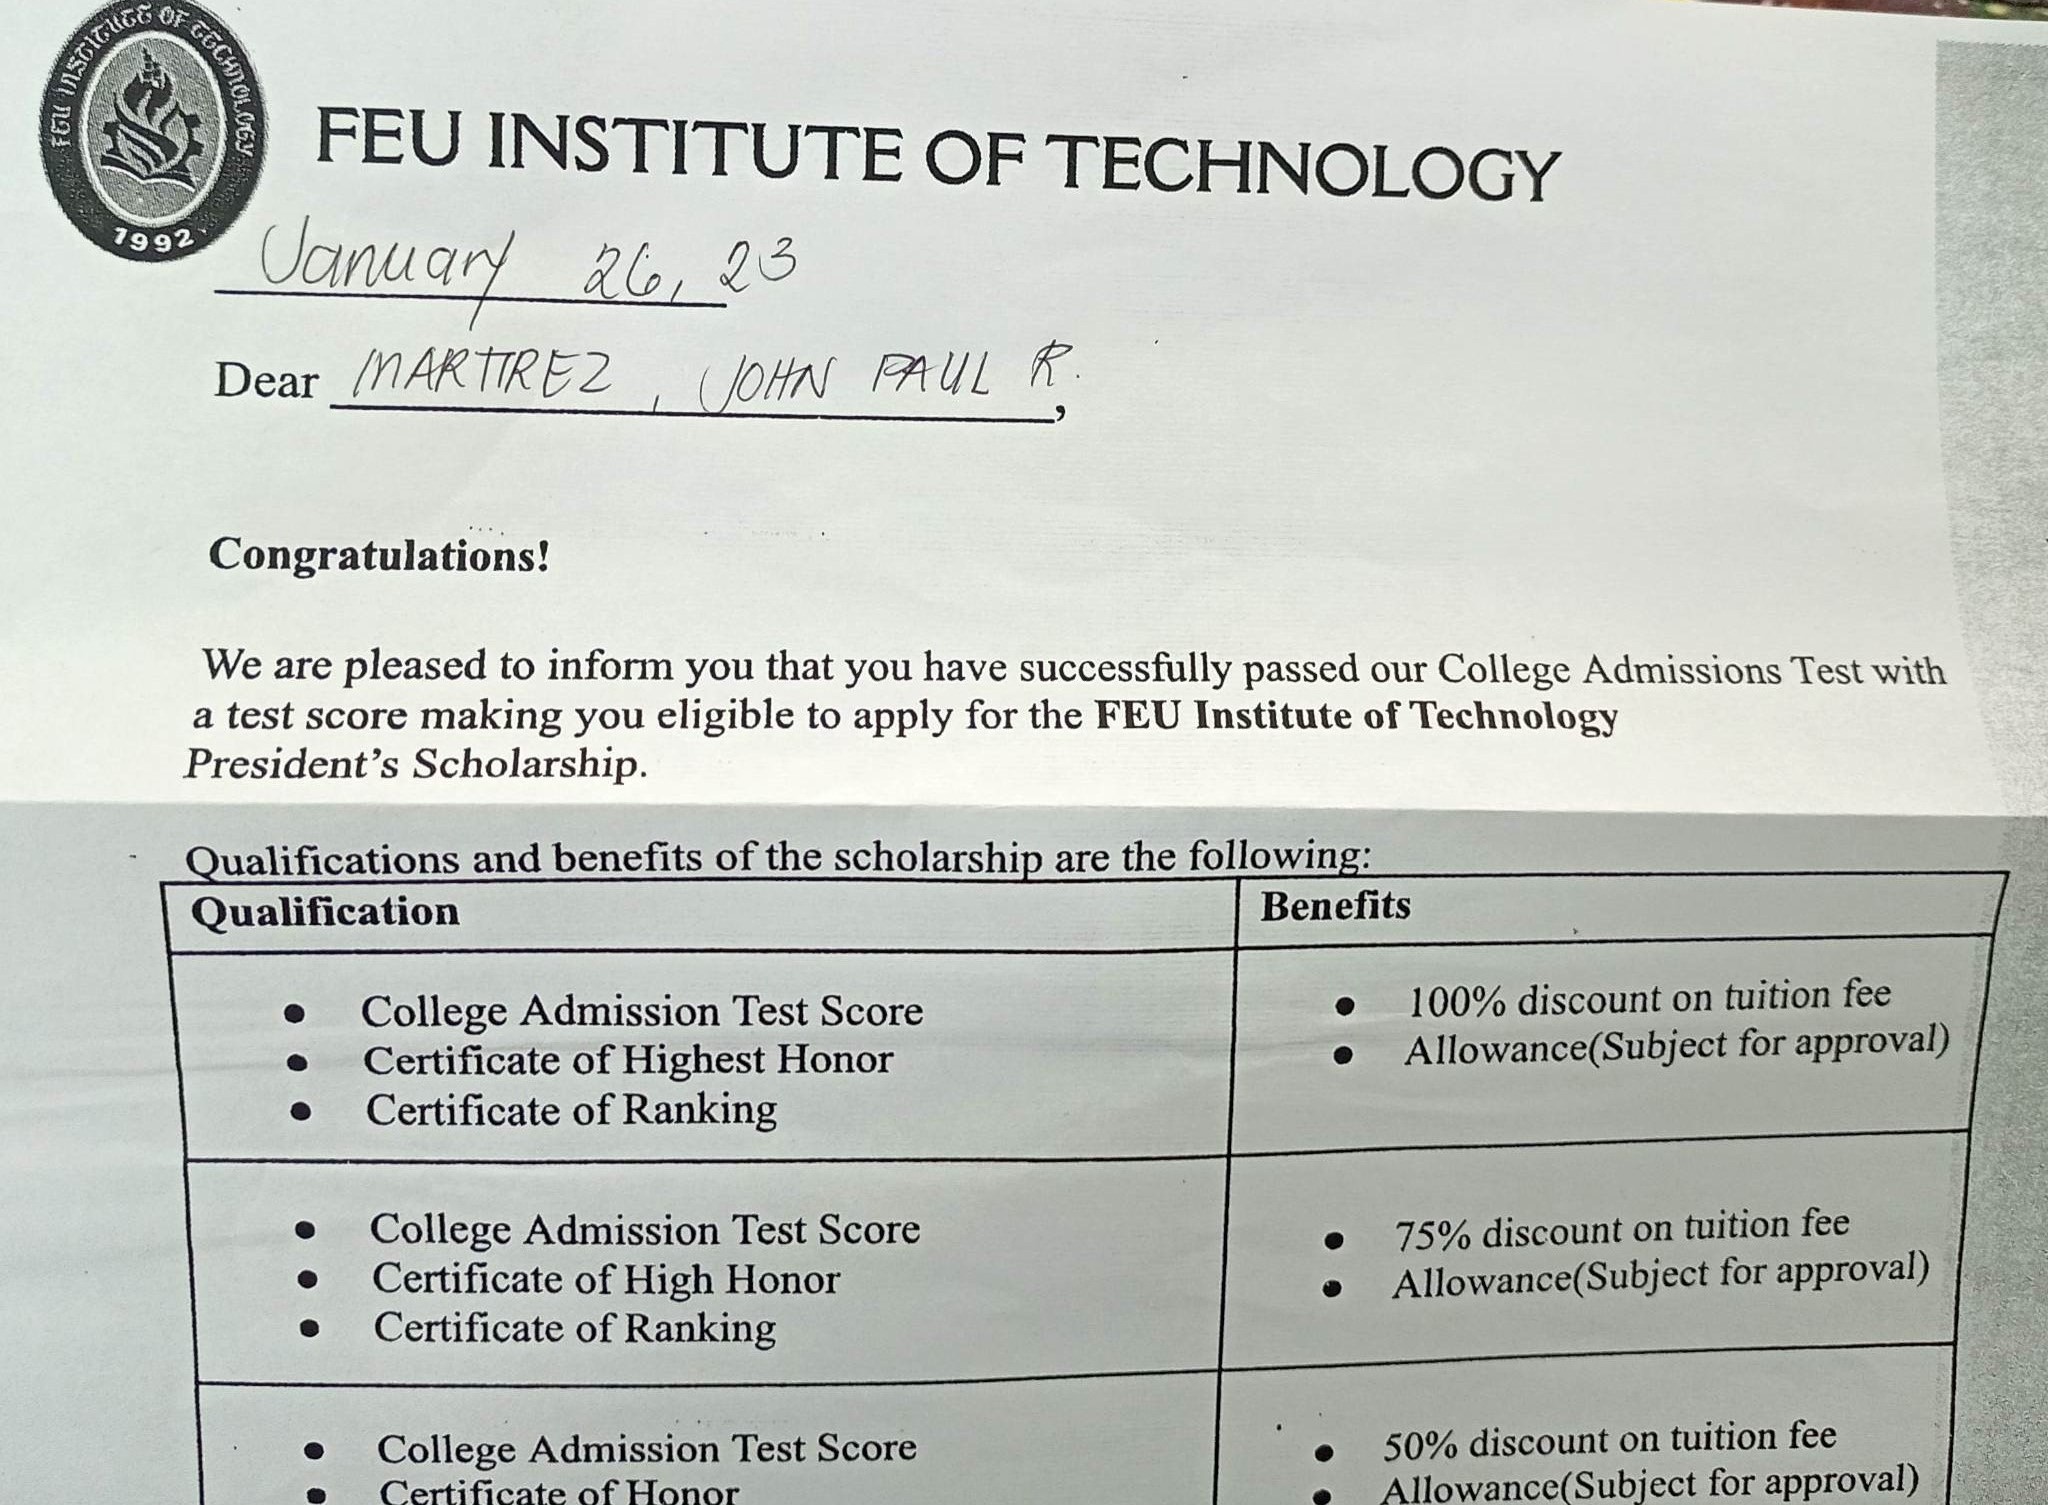 FEU INSTITUTE OF TECHNOLOGY
1992
FEU INSTITUTE OF TECHNOLOGY
January 26, 23
Dear MARTIREZ, JOHN PAUL R.,
Congratulations!
We are pleased to inform you that you have successfully passed our College Admissions Test with
a test score making you eligible to apply for the FEU Institute of Technology
President's Scholarship.
Qualifications and benefits of the scholarship are the following:
Qualification
Benefits
• College Admission Test Score
• Certificate of Highest Honor
• Certificate of Ranking
• 100% discount on tuition fee
• Allowance(Subject for approval)
• College Admission Test Score
• Certificate of High Honor
• Certificate of Ranking
• 75% discount on tuition fee
• Allowance(Subject for approval)
• College Admission Test Score
• Certificate of Honor
• 50% discount on tuition fee
• Allowance(Subject for approval)